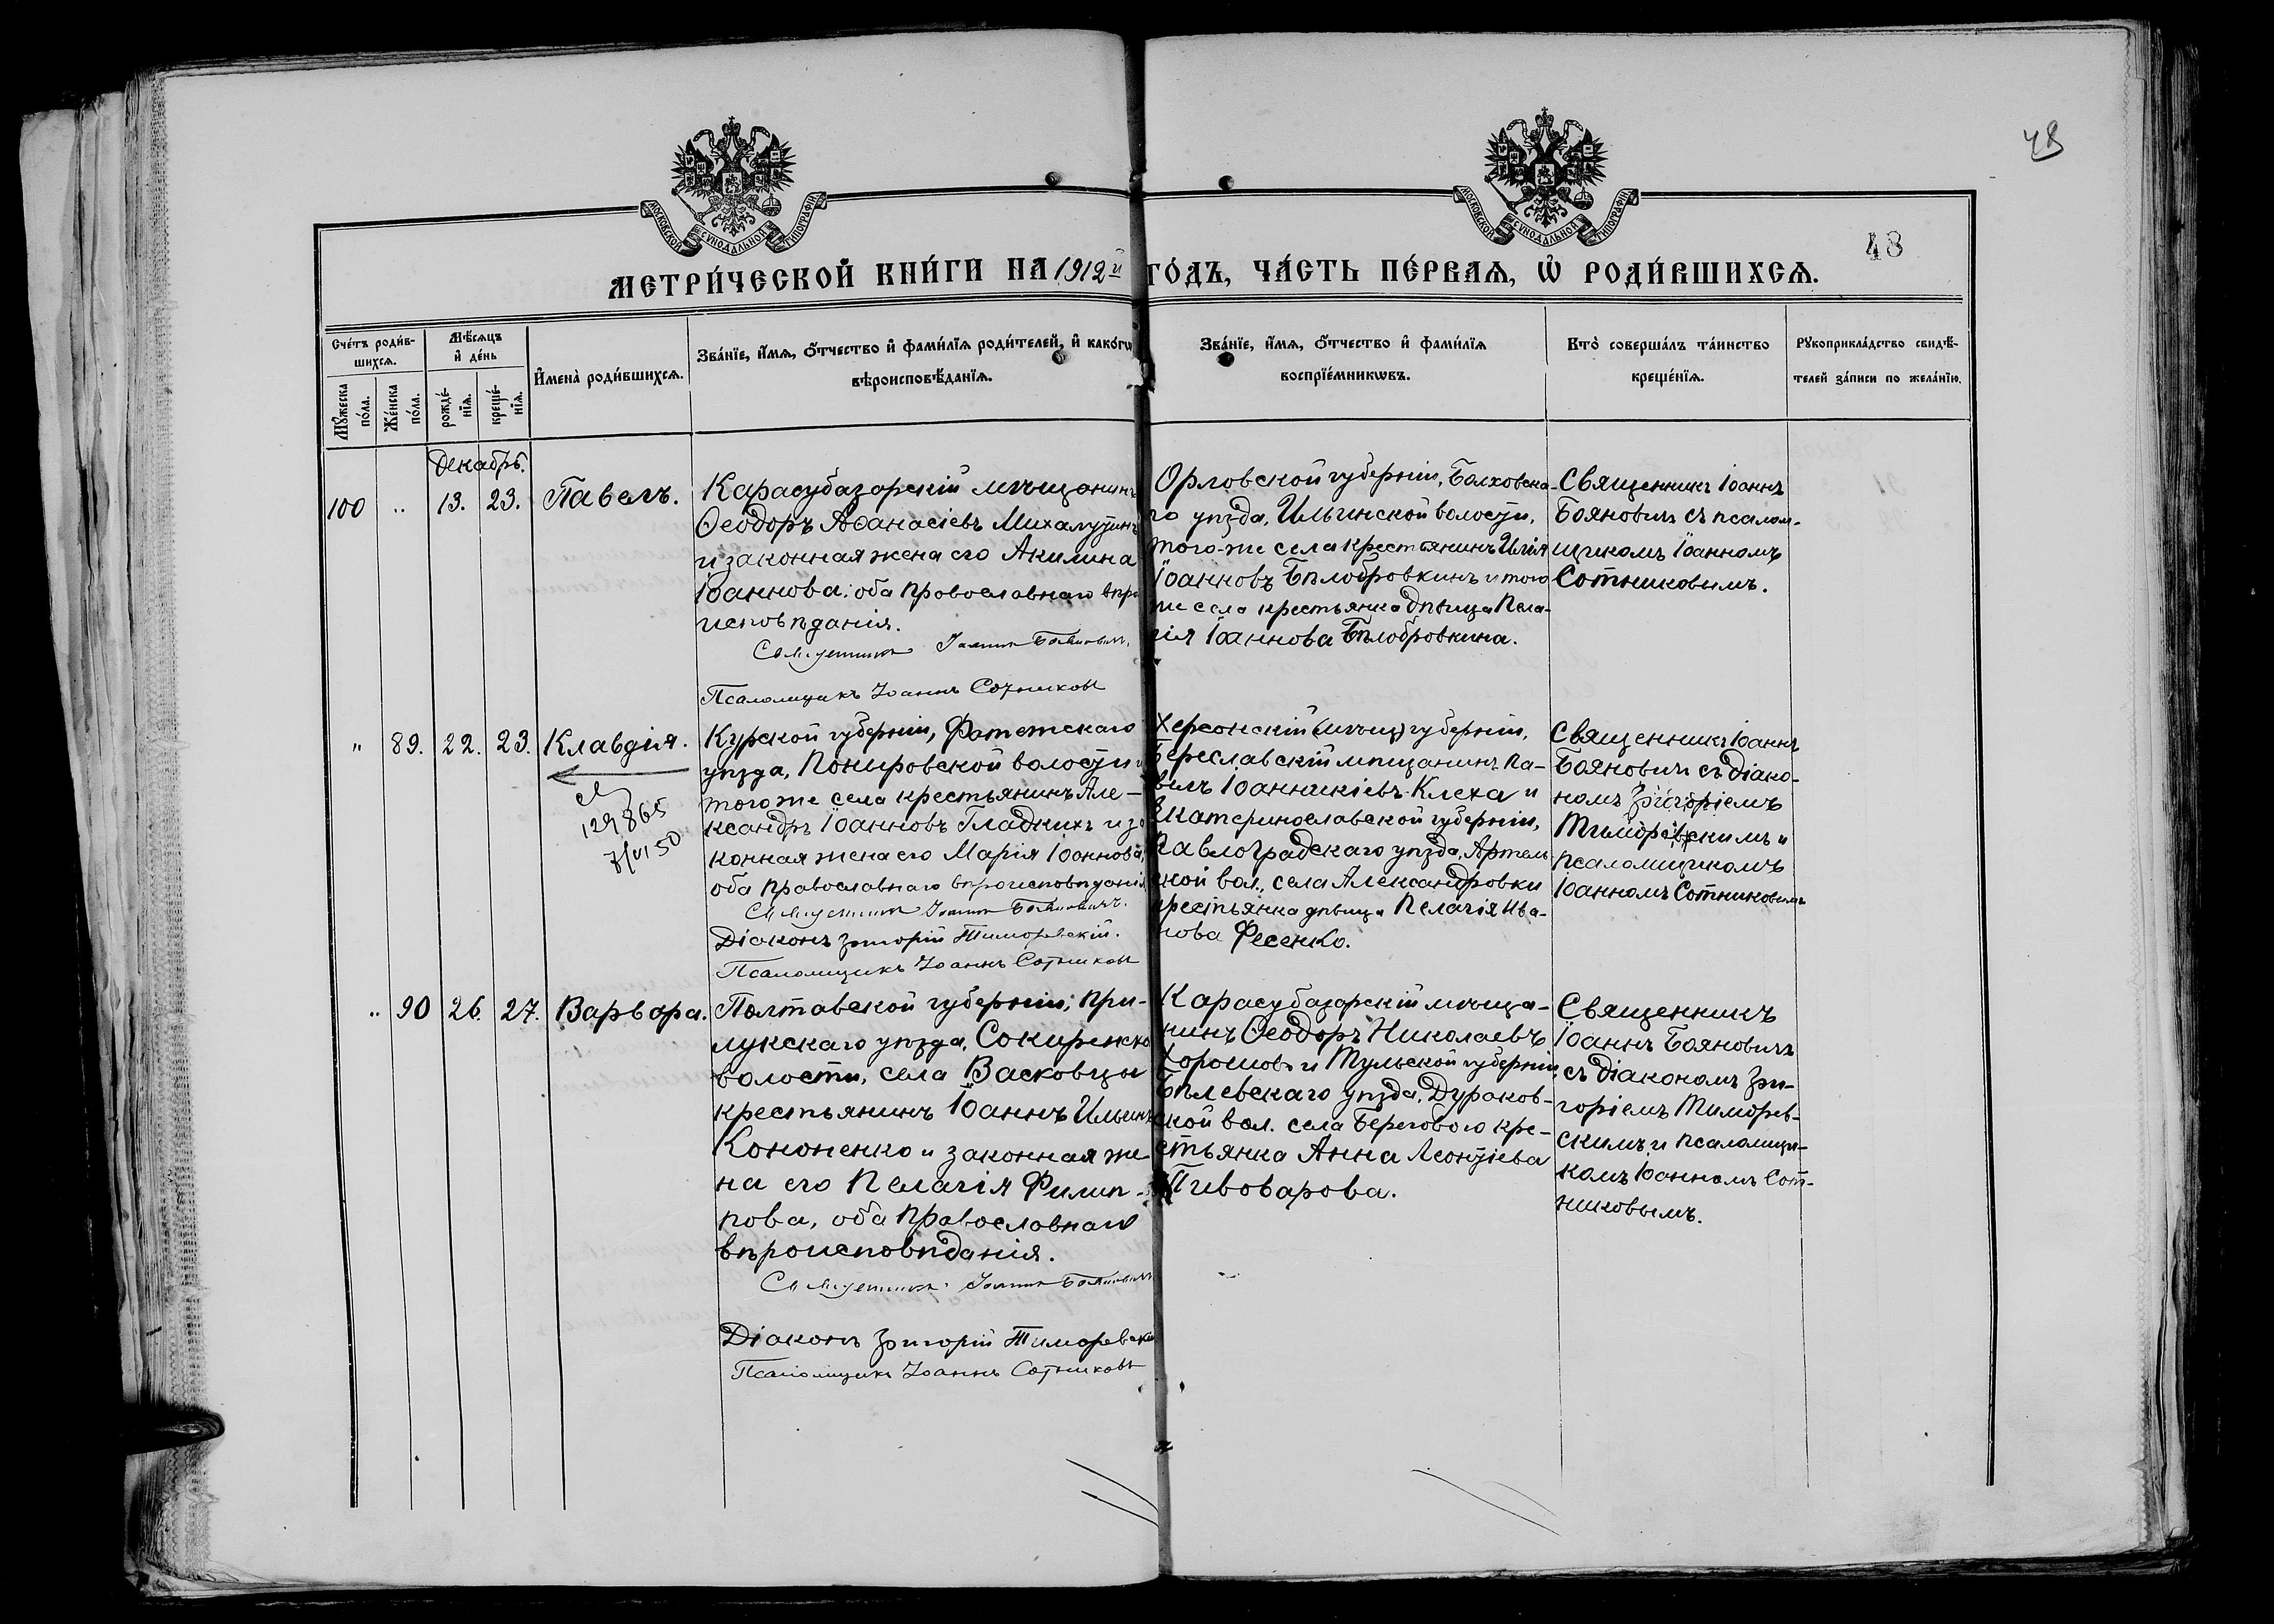 48
МОСКОВСКОЙ СѴНОДАЛЬНОЙ ТИПОГРАФІИ
МОСКОВСКОЙ СѴНОДАЛЬНОЙ ТИПОГРАФІИ
48
МЕТРИ́ЧЕСКОЙ КНИ́ГИ НА 1912й ГО́ДЪ, ЧА́СТЬ ПЕ́РВАѦ, Ѡ РОДИ́ВШИХСѦ.
Сче́тъ роди́в-
шихсѧ.
Мꙋ́жеска по́ла.
Же́нска по́ла.
Мѣ́сѧцъ
и де́нь
рожде́-
нїѧ.
креще́-
нїѧ.
Имена̀ роди́вшихсѧ.
Зва́нїе, и́мѧ, о́тчество и фами́лїѧ роди́телей, и како́гѡ
вѣроисповѣ́данїѧ.
Зва́нїе, и́мѧ, о́тчество и фами́лїѧ
воспрїе́мникѡвъ.
Кто̀ соверша́лъ та́инство
креще́нїѧ.
Рꙋкоприкла́дство свидѣ́-
телей за́писи по жела́нїю.
Декабрь.
100 „ 13. 23. Павелъ.
Карасубазарскій мѣщанинъ
Ѳеодоръ Аѳанасіевъ Михалутинъ
и законная жена его Акилина
Іоаннова; оба православнаго вѣро
исповѣданія.
Священникъ Іоаннъ Бояновичъ.
Псаломщикъ Іоаннъ Сотниковъ
Орловской губерніи, Болховска-
го уѣзда, Ильинской волости,
того-же села крестьянинъ Илія
Іоанновъ Бѣлобровкинъ и того
же села крестьянка дѣвица Пела-
гія Іоаннова Бѣлобровкина.
Священникъ Іоаннъ
Бояновичъ съ псалом-
щикомъ Іоанномъ
Сотниковымъ.
„ 89. 22. 23. Клавдія.
129865
7/VI 50
Курской губерніи, Фатетскаго
уѣзда, Поныровской волости и
того же села крестьянинъ Але-
ксандръ Іоанновъ Гладкихъ и за
конная жена его Марія Іоаннова,
оба православнаго вѣроисповѣданія
Священникъ Іоаннъ Бояновичъ.
Діаконъ Григорій Тиморевскій.
Псаломщикъ Іоаннъ Сотниковъ
Херсонскій (мѣщ) губерніи,
Береславскій мѣщанинъ Па-
велъ Іоанникіевъ Клеха и
Екатеринославской губерніи,
Павлоградскаго уѣзда, Артель
ской вол., села Александровки
крестьянка дѣвица Пелагія Ива-
нова Фесенко.
Священникъ Іоаннъ
Бояновичъ съ діако-
номъ Григоріемъ
Тиморевскимъ и
псаломщикомъ
Іоанномъ Сотниковымъ
„ 90 26. 27. Варвара.
Полтавской губерніи, При-
лукскаго уѣзда, Сокиренско
волости, села Васковцы
крестьянинъ Іоаннъ Ильинъ
Кононенко и законная же
на его Пелагія Филип-
пова, оба православнаго
вѣроисповѣданія.
Священникъ Іоаннъ Бояновичъ
Діаконъ Григорій Тиморевскій
Псаломщикъ Іоаннъ Сотниковъ
Карасубазарскій мѣща-
нинъ Ѳеодоръ Николаевъ
Хорошовъ и Тульской губерніи,
Бѣлевскаго уѣзда, Дураков-
ской вол. села Берегового кре-
стьянка Анна Леонтіева
Пивоварова.
Священникъ
Іоаннъ Бояновичъ
съ діакономъ Гри-
горіемъ Тиморев-
скимъ и псаломщи-
комъ Іоанномъ Сот-
никовымъ.